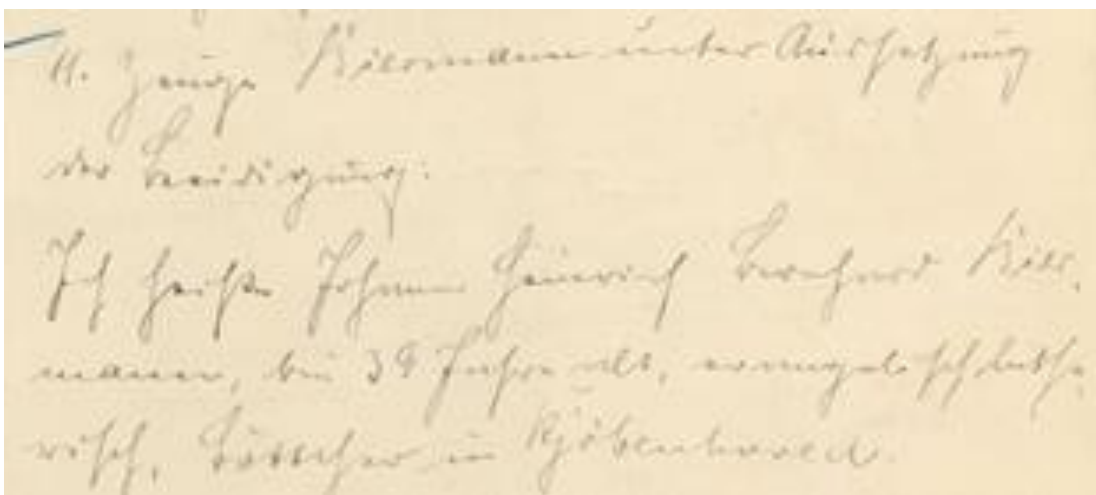 11. Zeuge Kiesmann unter Aussetzung
der Beeidigung:
Ich heiße Johann Heinrich Bernhard Kies-
mann, bin 39 Jahre alt, evangelisch luthe-
risch, Böttcher in